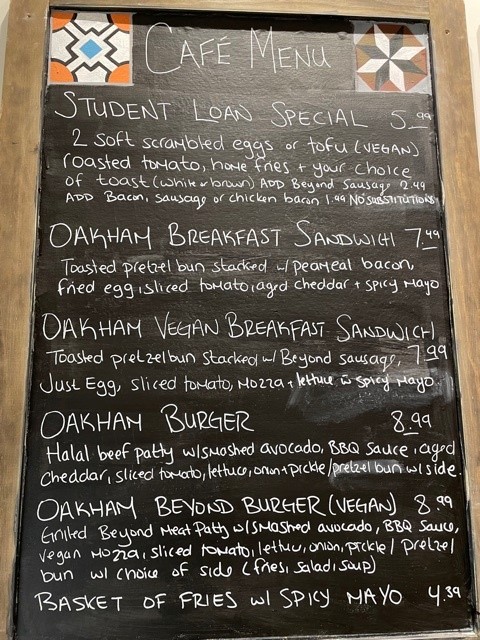 CAFÉ MENU
STUDENT LOAN SPECIAL 5.99
2 soft scrambled eggs or tofu (VEGAN)
roasted tomato, home fries + your choice
of toast (white or brown) ADD Beyond Sausage 2.49
ADD Bacon, sausage or chicken bacon 1.99 NO SUBSTITUTIONS
OAKHAM BREAKFAST SANDWICH 7.49
Toasted pretzel bun stacked w/ peameal bacon,
fried egg, sliced tomato, aged cheddar + spicy Mayo
OAKHAM VEGAN BREAKFAST SANDWICH
Toasted pretzel bun stacked w/ Beyond sausage, 7.99
Just Egg, sliced tomato, Mozza + lettuce w spicy Mayo.
OAKHAM BURGER 8.99
Halal beef patty w/smashed avocado, BBQ Sauce, aged
cheddar, sliced tomato, lettuce, onion + pickle/pretzel bun w/side.
OAKHAM BEYOND BURGER (VEGAN) 8.99
Grilled Beyond Meat Patty w/smashed avocado, BBQ Sauce,
vegan Mozza, sliced tomato, lettuce, onion, pickle/ pretzel
bun w/ choice of side (fries, salad, soup)
BASKET OF FRIES w/ SPICY MAYO 4.39